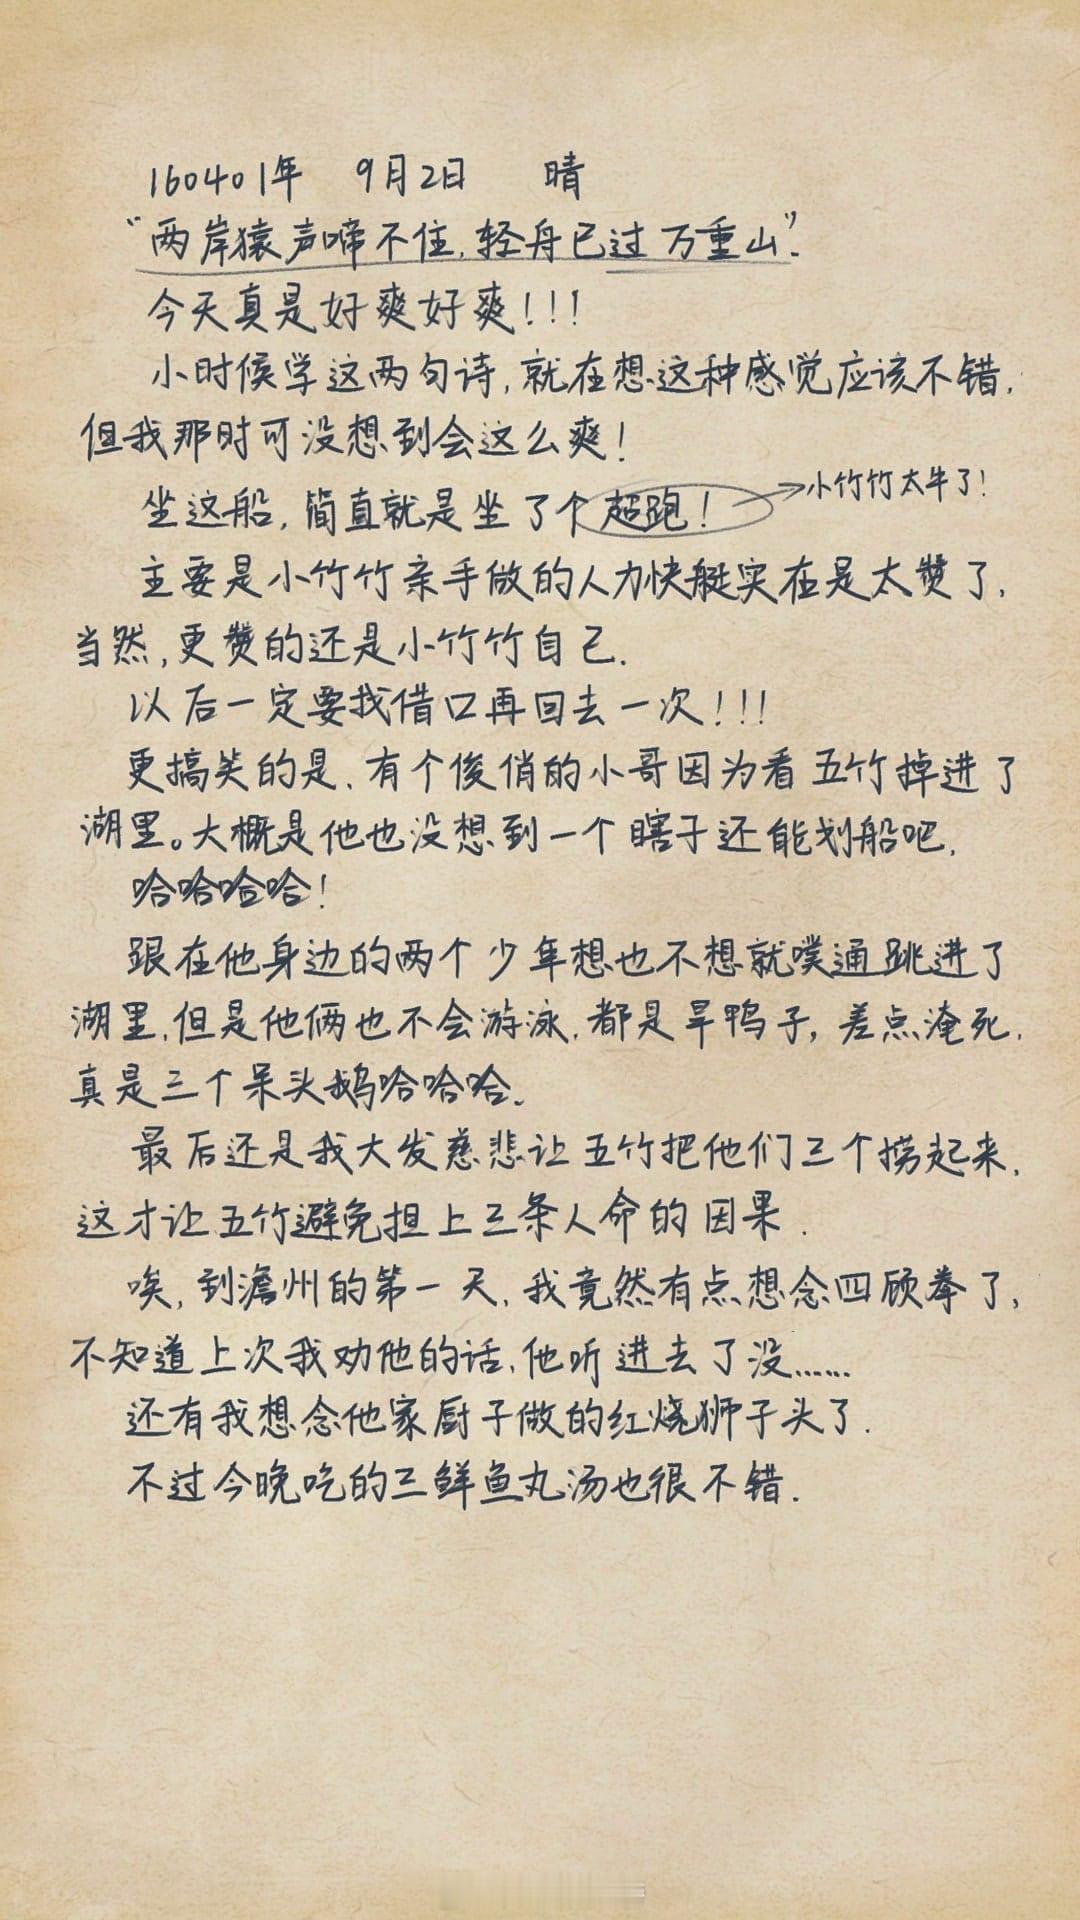 160401年 9月2日 晴
“两岸猿声啼不住,轻舟已过万重山”.
今天真是好爽好爽!!!
小时候学这两句诗,就在想这种感觉应该不错,
但我那时可没想到会这么爽!
坐这船,简直就是坐了个超跑! 小竹竹太牛了!
主要是小竹竹亲手做的人力快艇实在是太赞了,
当然,更赞的还是小竹竹自己.
以后一定要找借口再回去一次!!!
更搞笑的是,有个俊俏的小哥因为看五竹掉进了
湖里。大概是他也没想到一个瞎子还能划船吧,
哈哈哈哈!
跟在他身边的两个少年想也不想就噗通跳进了
湖里,但是他俩也不会游泳,都是旱鸭子,差点淹死.
真是三个呆头鹅哈哈哈.
最后还是我大发慈悲让五竹把他们三个捞起来,
这才让五竹避免担上三条人命的因果.
唉,到澹州的第一天,我竟然有点想念四顾拳了,
不知道上次我劝他的话,他听进去了没......
还有我想念他家厨子做的红烧狮子头了.
不过今晚吃的三鲜鱼丸汤也很不错.